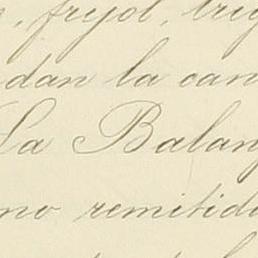 , frijol, trig
dan la can
La Balan
no remitid